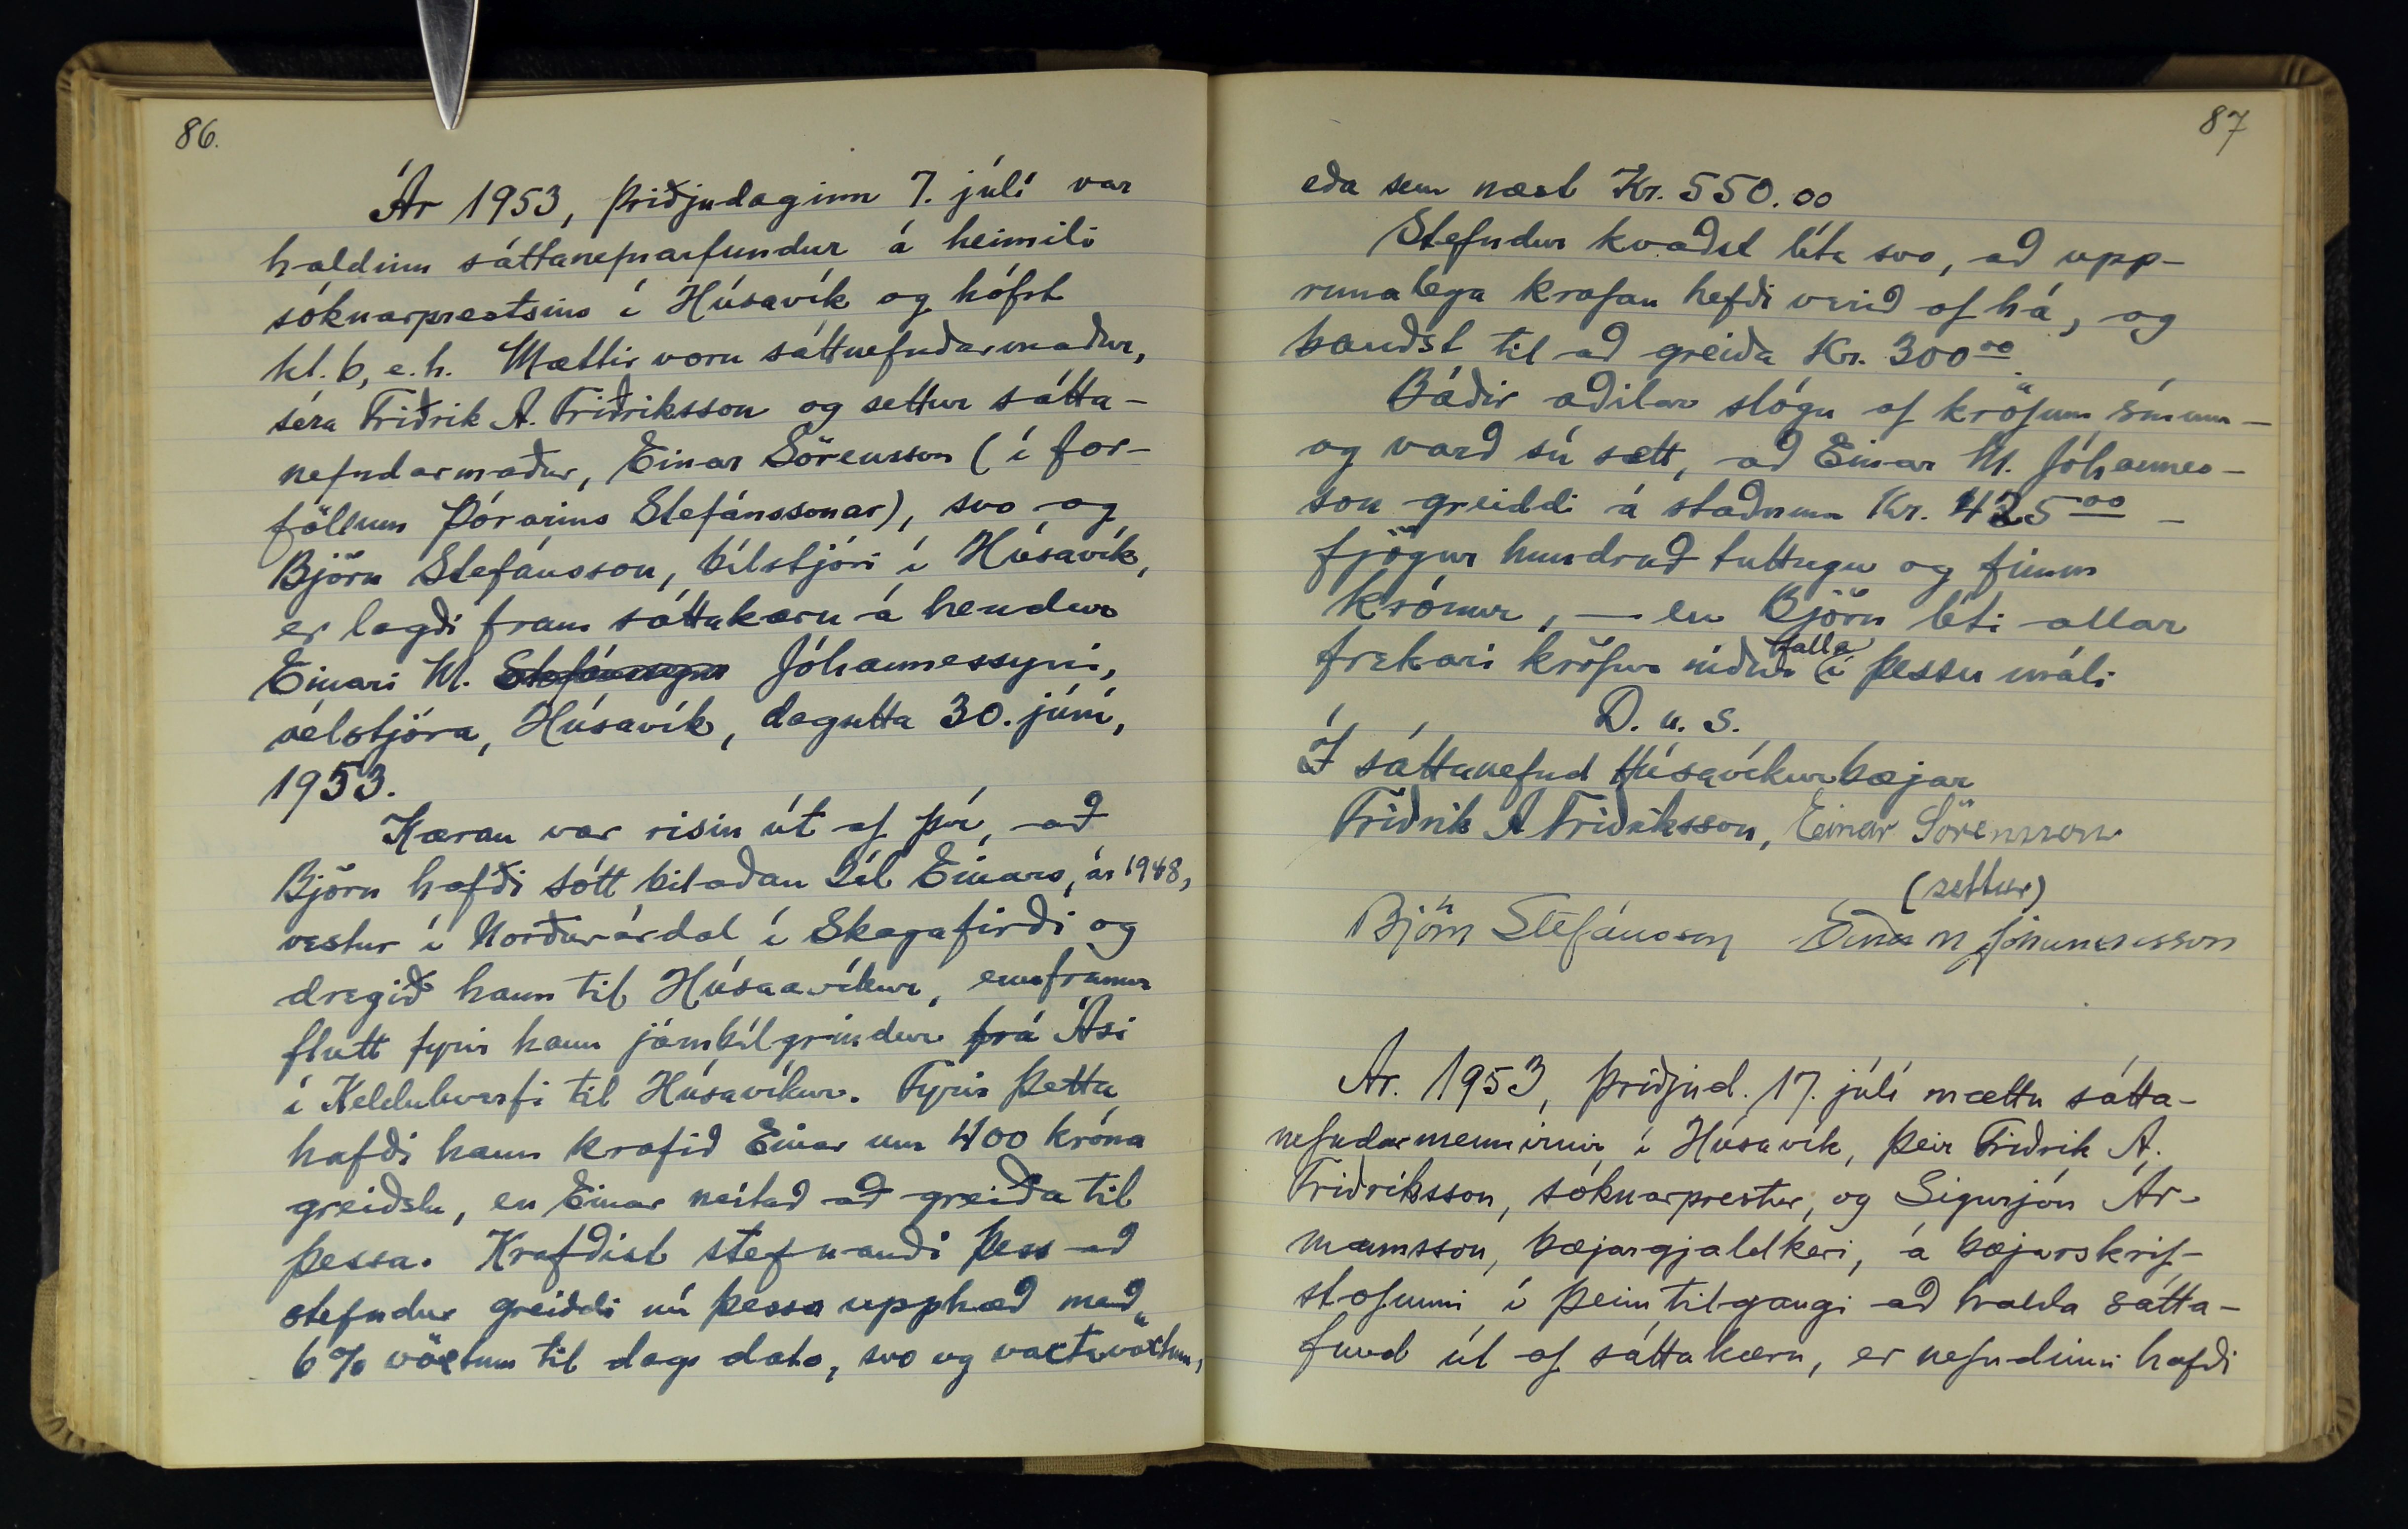 86.
Ár 1953, þriðjudaginn 7. júlí var
haldinn sáttanefnarfundur á heimili
sóknarprestsins í Húsavík og hófst
kl. 6, e.h. Mættir voru sáttnefndarmaður,
séra Friðrik A. Friðriksson og settur sátta-
nefndarmaður, Einar Sörensson (í for-
föllum Þórarins Stefánssonar), svo og
Björn Stefánsson, bílstjóri í Húsavík,
er lagði fram sáttakæru á hendur
Einari M. Stefánssyni Jóhannessyni,
vélstjóra, Húsavík, dagsetta 30. júní,
1953.
Kæran var risin út af því, að
Björn hafði sótt bilaðan bíl Einars, ár 1948,
vestur í Norðurárdal í Skagafirði og
dregið hann til Húsaavíkur, ennfremur
flutt fyrir hann járnbílgrindur frá Ási
í Kelduhverfi til Húsavíkur. Fyrir þetta
hafði hann krafið Einar um 400 króna
greiðslu, en Einar neitað að greiða til
þessa. Krafðist stefnandi þess að
stefndur greiddi nú þessa upphæð með
6% vöxtum til dags dato, svo og vaxtavöxtum,
87
eða sem næst Kr. 550.00
Stefndur kvaðst líta svo, að upp-
runalega krafan hefði verið of há, og
bauðst til að greiða Kr. 300⁰⁰.
Báðir aðilar slógu af kröfum sínum -
og varð sú sætt, að Einar M. Jóhannes-
son greiddi á staðnum Kr. 425⁰⁰ -
fjögur hundruð tuttugu og fimm
krónur, — en Björn léti allar
frekari kröfur niður falla í þessu máli
D. u. s.
Í sáttanefnd Húsavíkurbæjar
Friðrik A Friðriksson, Einar Sörensson
(settur)
Björn Stefánsson Einar M Jóhannesson
Ár. 1953, þriðjud. 17. júlí mættu sátta-
nefndarmennirnir í Húsavík, þeir Friðrik A.
Friðriksson, sóknarprestur, og Sigurjón Ár-
mannsson, bæjargjaldkeri, á bæjarskrif-
stofunni í þeim tilgangi að halda sátta-
fund út af sáttakæru, er nefndinni hafði